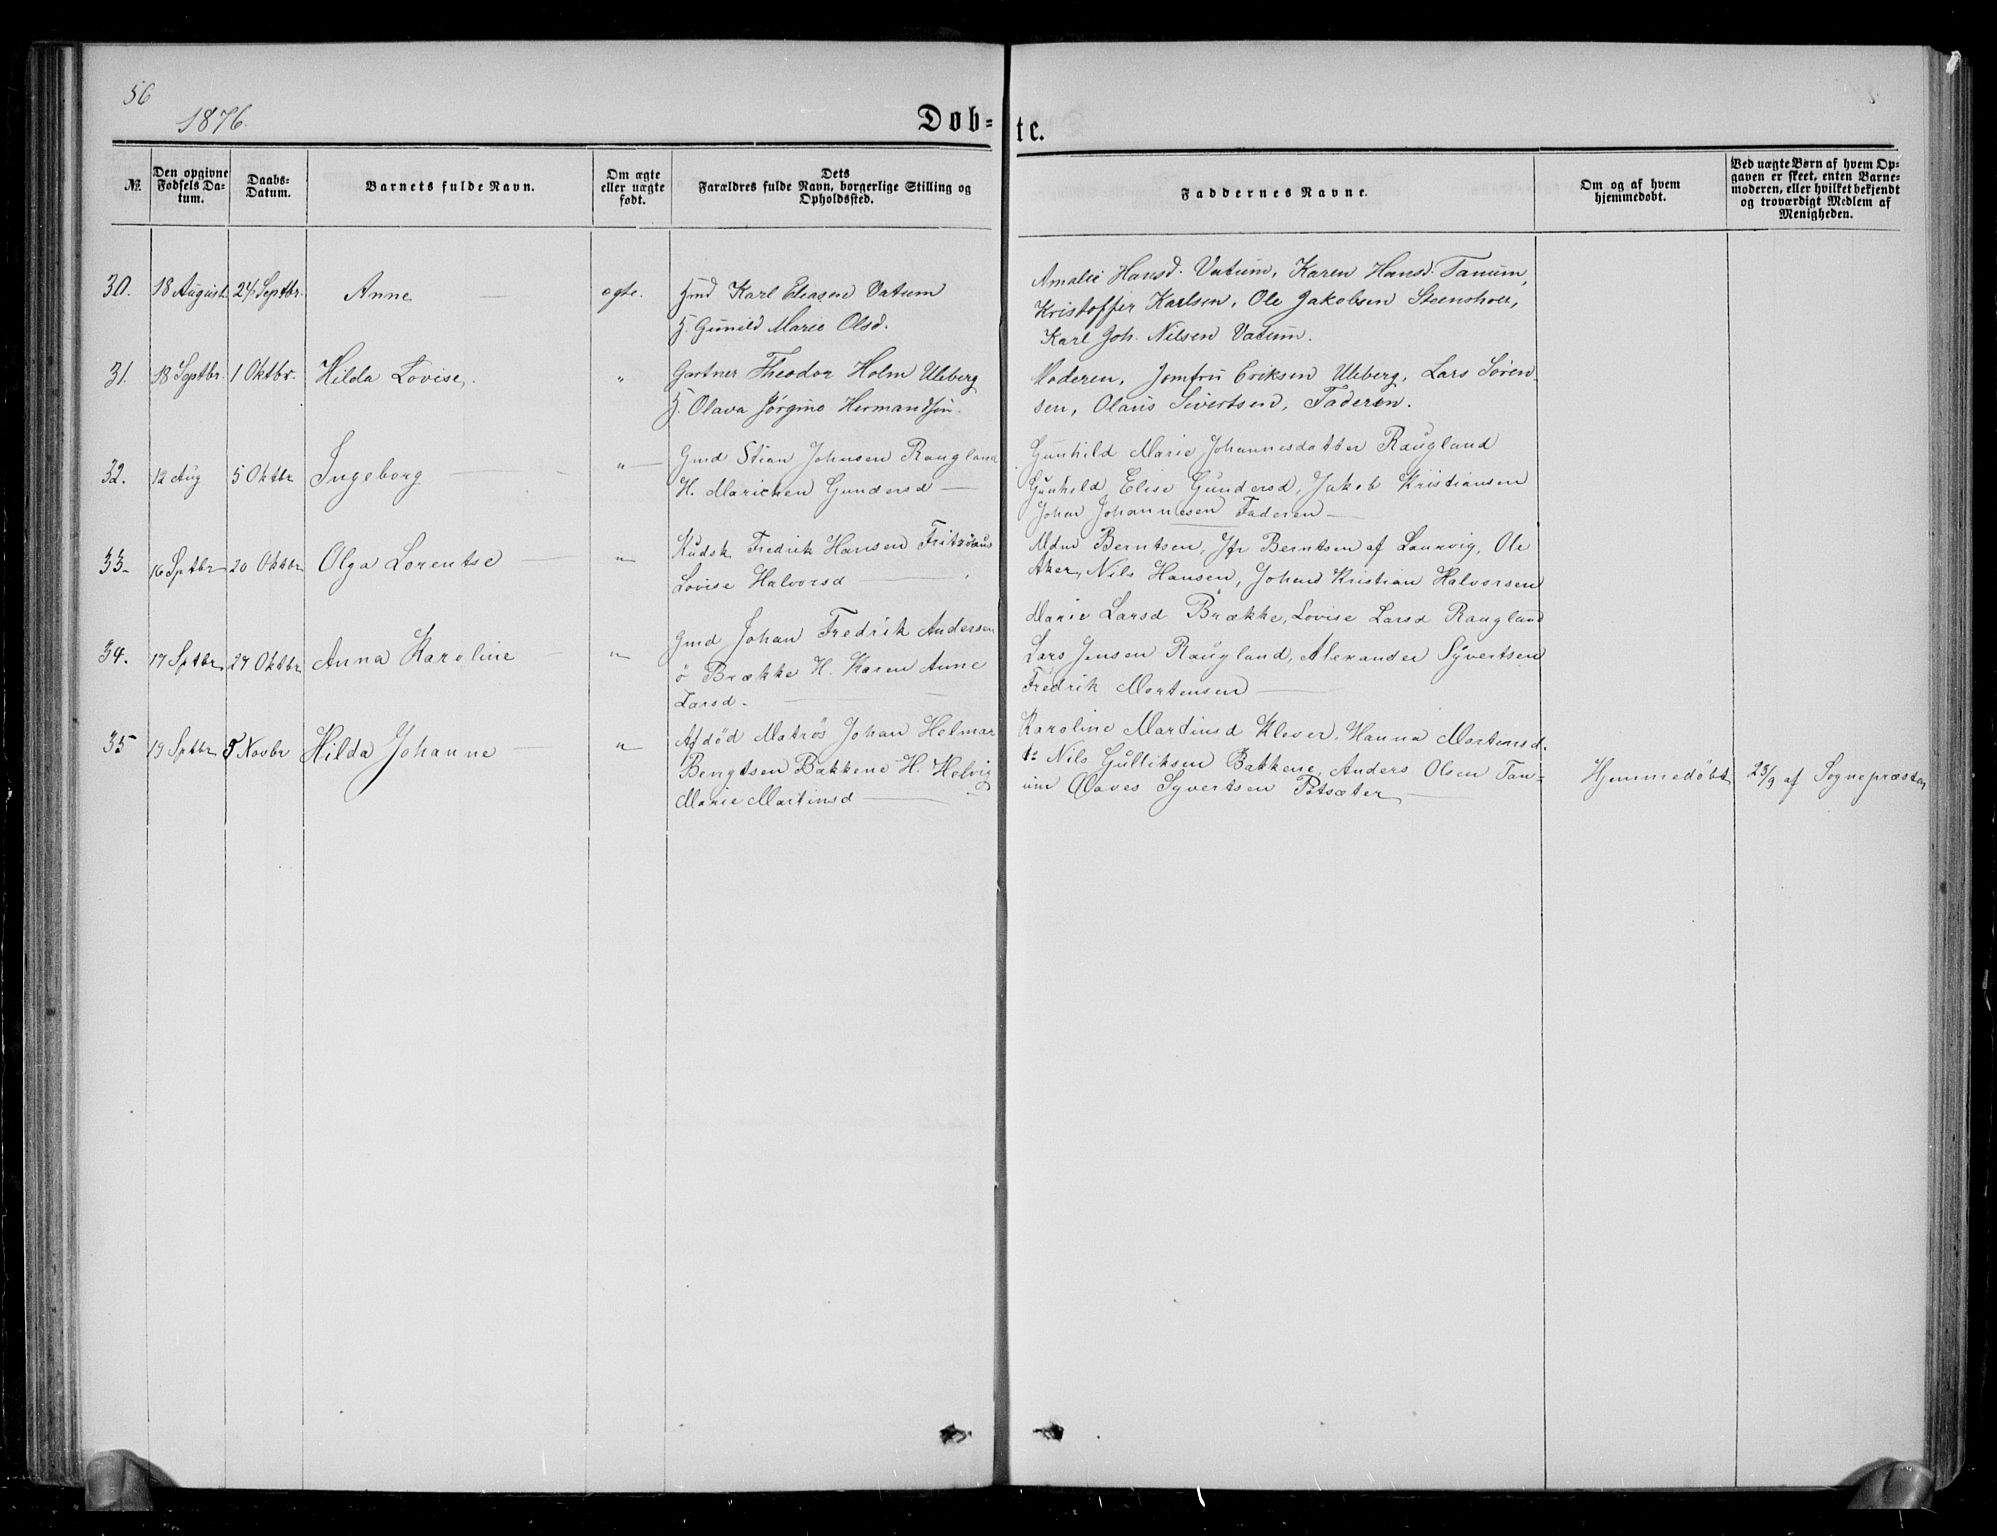 56
1876.
Døb-
te.
№
Den opgivne
Fødsels Da-
tum.
Daabs-
Datum.
Barnets fulde Navn.
Om ægte
eller uægte
født.
Dets
Forældres fulde Navn, borgerlige Stilling og
Opholdssted.
Faddernes Navne.
Om og af hvem
hjemmedøbt.
Ved uægte Børn af hvem Op-
gaven er skeet, enten Barne-
moderen, eller hvilket bekjendt
og troværdigt Medlem af
Menigheden.
30. 18 August 24 Septbr. Anne ægte.
Karl Eliasen Vatum
H. Gunild Marie Olsd.
Amalie Hansd. Vatum, Karen Hansd. Tanum,
Kristoffer Karlsen, Ole Jakobsen Steensholt,
Karl Joh. Nilsen Vatum.
31. 18 Septbr. 1 Oktbr. Hilda Lovise. "
Gartner Theodor Holm Uleberg
H. Olava Jørgine Hermandsen.
Moderen, Jomfru Eriksen Uleberg, Lars Søren-
sen, Olaus Sivertsen, Faderen.
32. 12 Aug 5 Oktbr Ingeborg "
Gmd Stian Johnsen Raugland
H. Marichen Gundersd
Gunhild Marie Johannesdatter Raugland
Gunhild Elise Gundersd, Jakob Kristiansen
Johan Johannesen Faderen
33. 16 Sptbr 20 Oktbr Olga Lorentse "
Kudsk Fredrik Hansen Fritzøhus
Lovise Halvorsd
Mdm Berntsen, Jfr Berntsen af Laurvig, Ole
Aker, Nils Hansen, Johan Kristian Halvorsen
34. 17 Sptbr 27 Oktbr Anna Karoline "
Gmd Johan Fredrik Andersen
ø Brække H. Karen Anne
Larsd.
Marie Larsd Brække, Lovise Larsd Raugland
Lars Jensen Raugland, Alexander Syvertsen
Fredrik Mortensen
35 19 Sptbr 5 Novbr Hilda Johanne "
Afdød Matros Johan Helmar
Bengtsen Bakkene H. Helvig
Marie Martinsd
Karoline Martinsd Klever, Hanna Mortensd.
Nils Gulliksen Bakkene, Anders Olsen Tan-
um Olaves Syvertsen Potsæter
Hjemmedøbt 23/9 af Sognepræsten